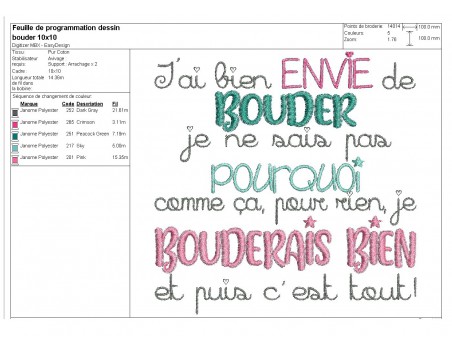 Feuille de programmation dessin
bouder 10x10
Digitizer MBX - EasyDesign
Points de broderie 14014
Couleurs 5
Zoom: 1.76
100.0 mm
100.0 mm
Tissu: Pur Coton
Stabilisateur requis: Avivage
Support : Arrachage x 2
Cadre: 10x10
Longueur totale de fil dans la bobine: 14.30m
Séquence de changement de couleur:
Marque Code Description Fil
Janome Polyester 252 Dark Gray 21.61m
Janome Polyester 265 Crimson 3.11m
Janome Polyester 251 Peacock Green 7.18m
Janome Polyester 217 Sky 5.00m
Janome Polyester 201 Pink 15.25m
J'ai bien ENVIE de
BOUDER
je ne sais pas
POURQUOI
comme ça, pour rien, je
BOUDERAIS BIEN
et puis c'est tout!